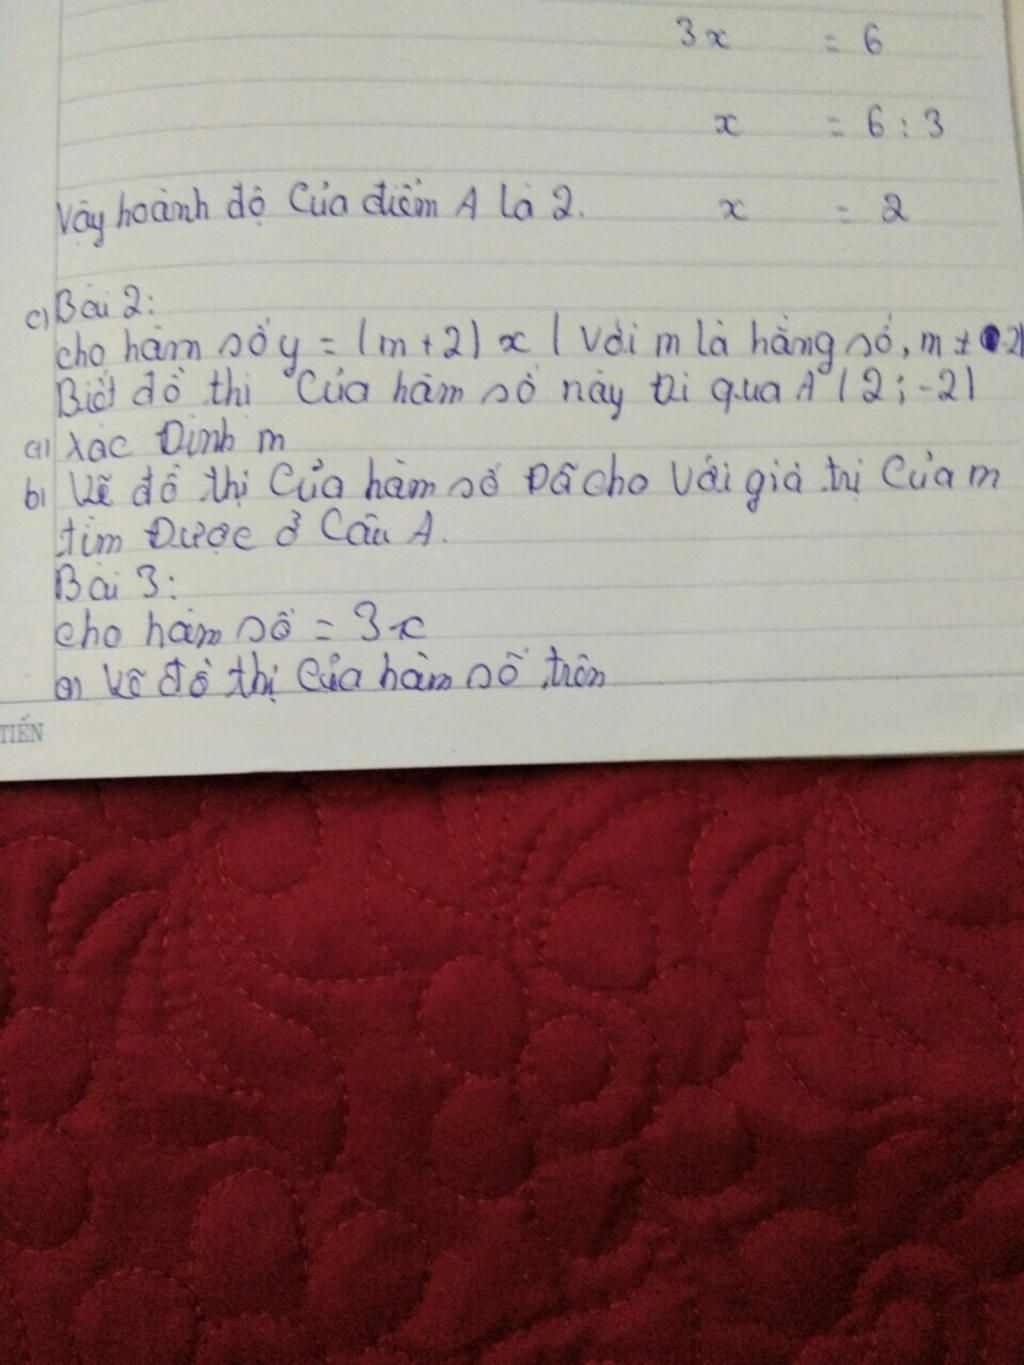 3x = 6
x = 6 : 3
Vậy hoành độ của điểm A là 2. x = 2
c) Bài 2:
cho hàm số y = (m + 2) x ( với m là hằng số, m ≠ -2)
Biết đồ thị của hàm số này Đi qua A (2 ; -2)
a) Xác Định m
b) Vẽ đồ thị của hàm số Đã cho với giá trị của m
tìm Được ở câu A.
Bài 3:
cho hàm số = 3x
a) Vẽ đồ thị của hàm số trên
TIẾN